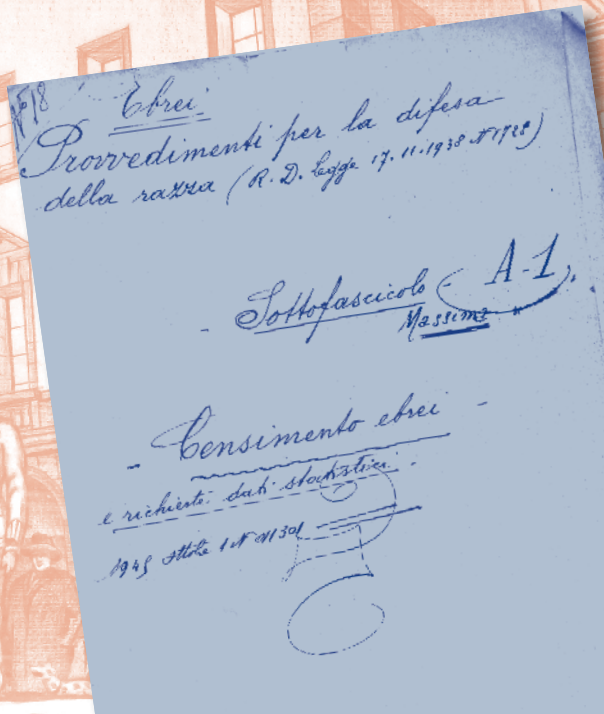 Ebrei
Provvedimenti per la difesa
della razza (R. D. Legge 17.11.1938 N 1728)
Sottofascicolo - A-1
Massime
- Censimento ebrei -
e richieste dati statistici.